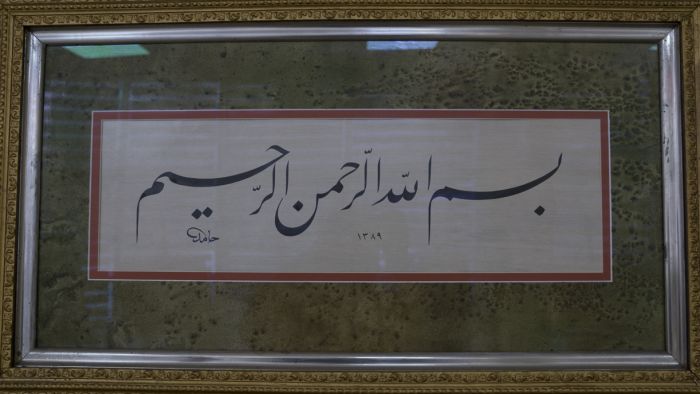 بسم الله الرحمن الرحيم
١٣٨٩
حامد